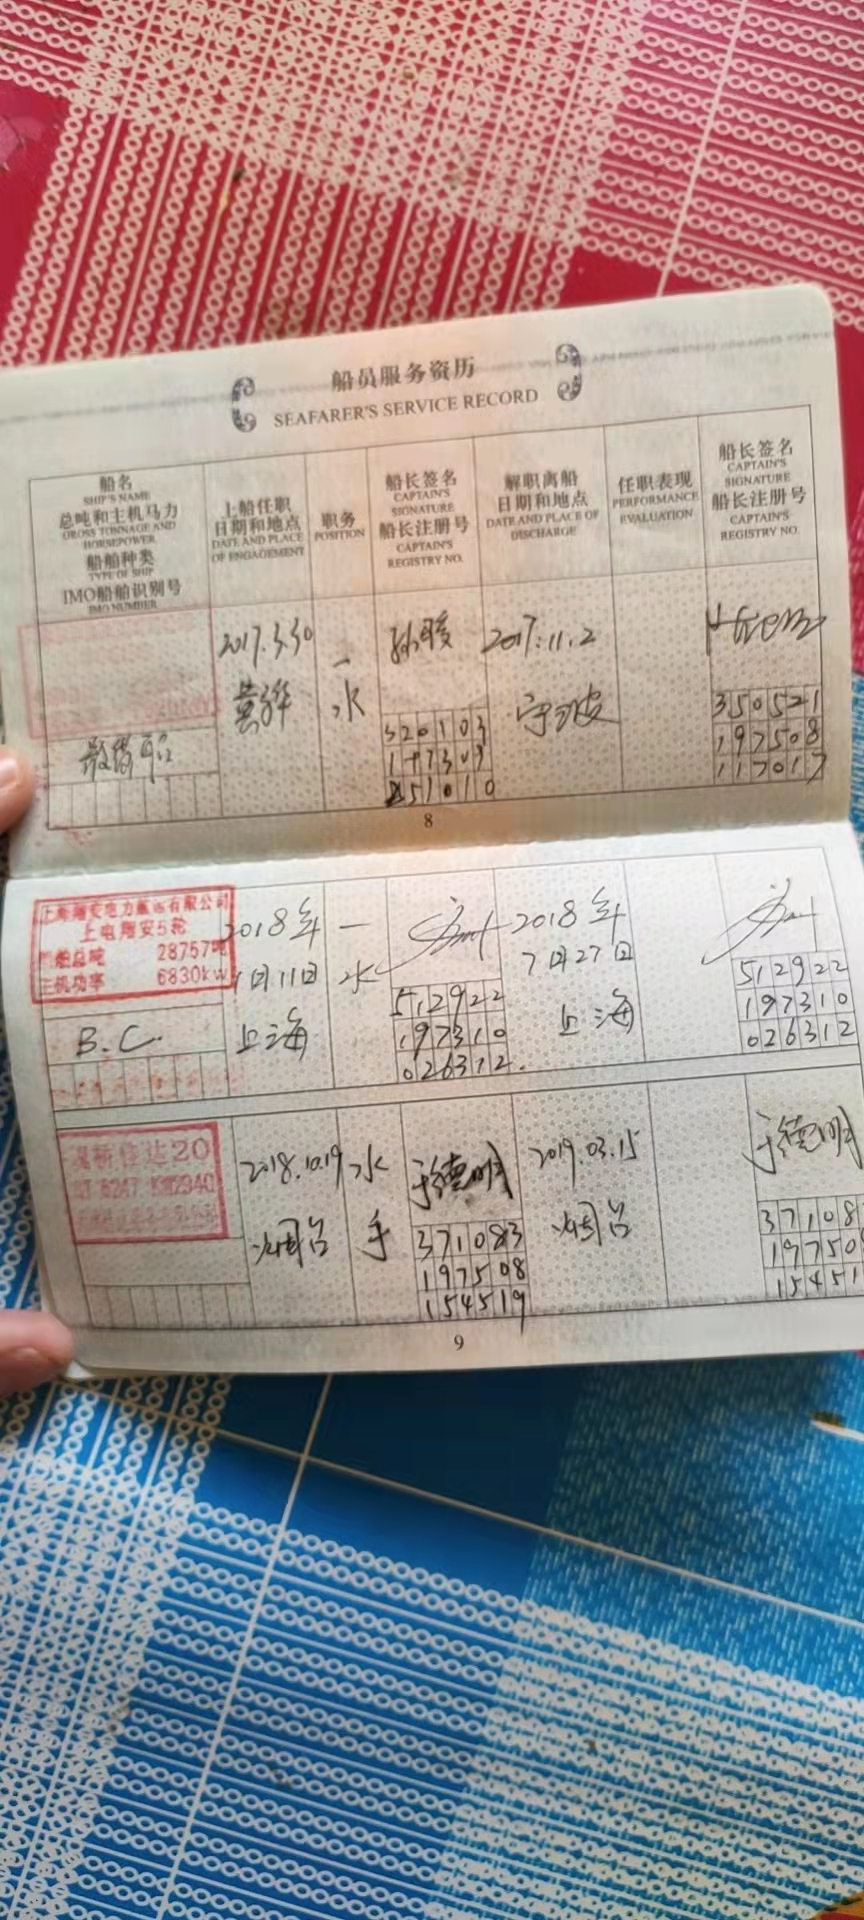 船员服务资历
SEAFARER'S SERVICE RECORD
船名
SHIP'S NAME
总吨和主机马力
GROSS TONNAGE AND
HORSEPOWER
船舶种类
TYPE OF SHIP
IMO船舶识别号
IMO NUMBER
上船任职
日期和地点
DATE AND PLACE
OF ENGAGEMENT
职务
POSITION
船长签名
CAPTAIN'S
SIGNATURE
船长注册号
CAPTAIN'S
REGISTRY NO.
解职离船
日期和地点
DATE AND PLACE OF
DISCHARGE
任职表现
PERFORMANCE
EVALUATION
船长签名
CAPTAIN'S
SIGNATURE
船长注册号
CAPTAIN'S
REGISTRY NO.
散货船
2017.3.30
黄骅
一
水
320103
51010
2017.11.2
宁波
350521
197508
117017
8
上电翔安5轮
船舶总吨 28757吨
主机功率 6830kw
B.C.
2018年
1月11日
上海
一
水
512922
197310
026312
2018年
7月27日
上海
512922
197310
026312
20
2018.10.19
烟台
水
手
于德明
371083
197508
154519
2019.03.15
烟台
于德明
37108
19750
15451
9